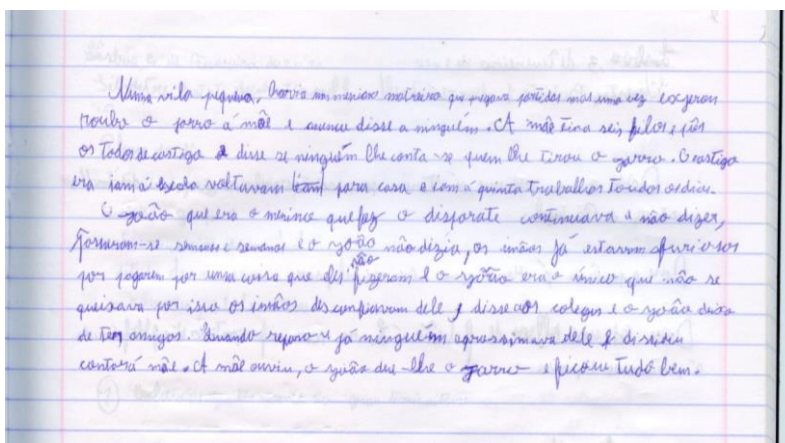 Numa vila pequena, havia um menino matreiro que pegava partidas mas uma vez exgerou
roubo o jarro á mãe e nunca disse a ninguém. A mãe tina seis filos e pôs
os todos de castigo e disse se ninguém lhe conta-se quem lhe tirou o jarro. O castigo
era iam á escola voltavam para casa e iam á quinta trabalhar toudos os dias.
O joão que era o menino que faz o disparate continuava a não dizer,
passaram-se semanas e semanas e o joão não dizia, os imãos já estavam furiosos
por pagarem por uma coisa que eles não fizeram e o joão era o único que não se
queixava por isso os imãos desconfiavam dele e disse aos colegas e o joão deixo
de ter amigos. Quando reparo-u já ninguém aprossimava dele e dissidiu
contar á mãe. A mãe ouviu, o joão deu-lhe o jarro e ficou tudo bem.